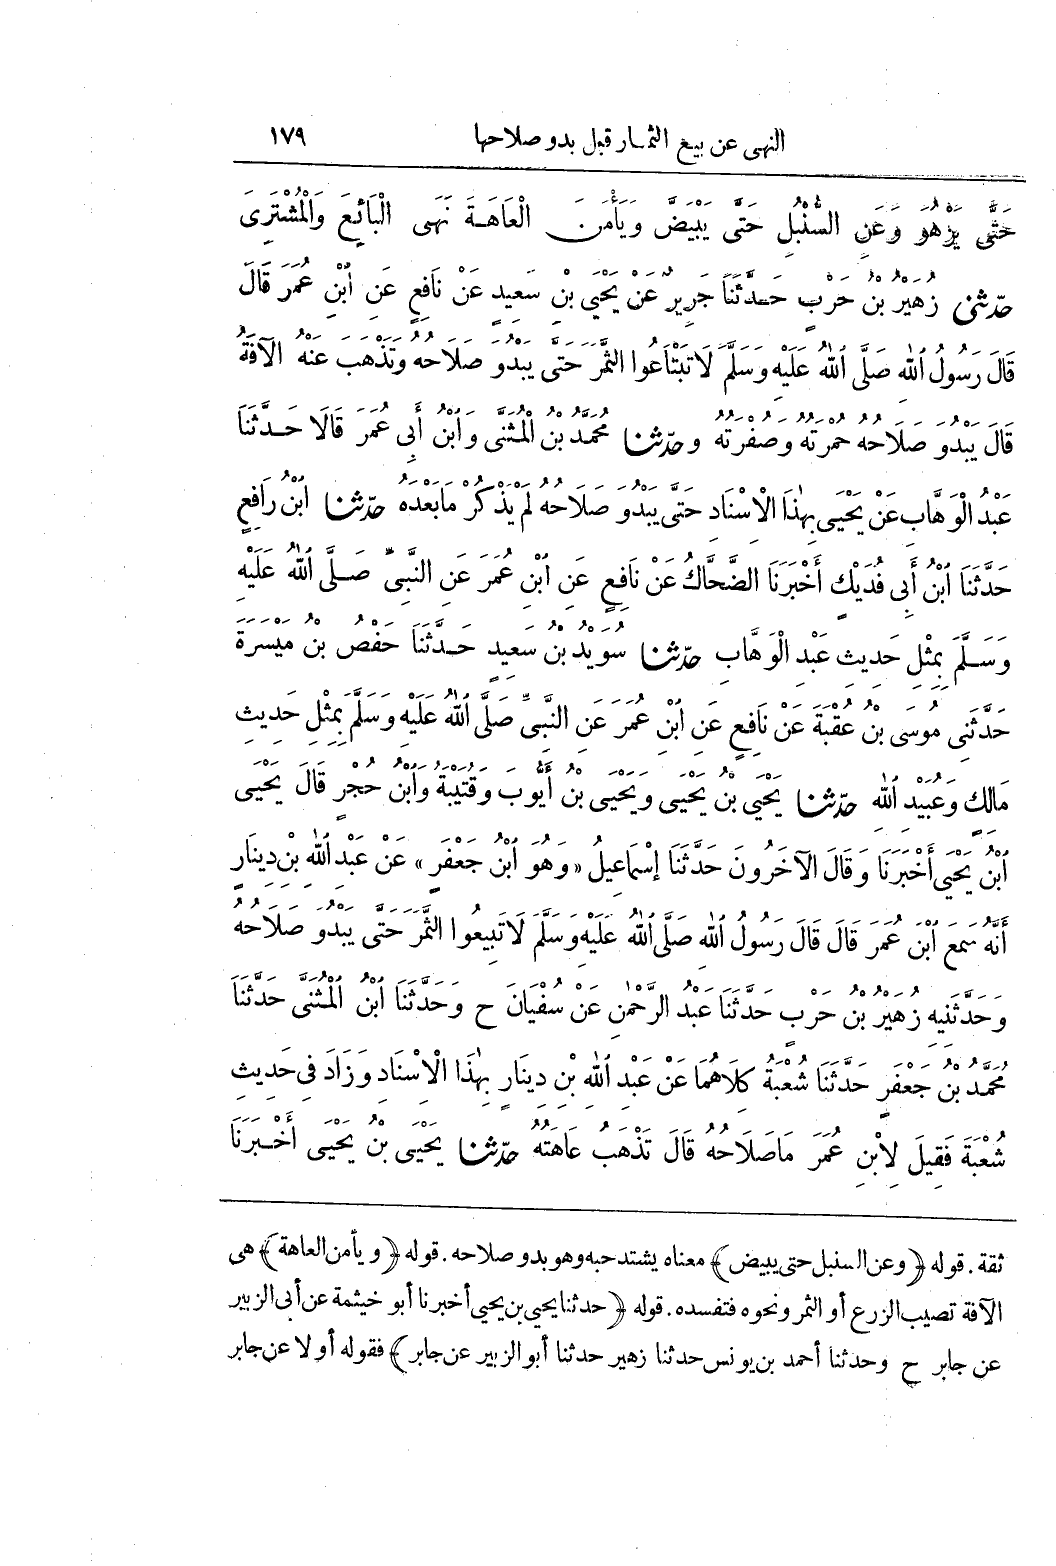 النهى عن بيع الثمار قبل بدو صلاحها ١٧٩
حَتَّى يَزْهُوَ وَعَنِ السُّنْبُلِ حَتَّى يَبْيَضَّ وَيَأْمَنَ الْعَاهَةَ نَهَى الْبَائِعَ وَالْمُشْتَرِىَ
حدّثنى زُهَيْرُ بْنُ حَرْبٍ حَدَّثَنَا جَرِيرٌ عَنْ يَحْيَى بْنِ سَعِيدٍ عَنْ نَافِعٍ عَنِ ابْنِ عُمَرَ قَالَ
قَالَ رَسُولُ اللهِ صَلَّى اللهُ عَلَيْهِ وَسَلَّمَ لَا تَبْتَاعُوا الثَّمَرَ حَتَّى يَبْدُوَ صَلَاحُهُ وَتَذْهَبَ عَنْهُ الْآفَةُ
قَالَ يَبْدُوَ صَلَاحُهُ حُمْرَتُهُ وَصُفْرَتُهُ وحدّثنا مُحَمَّدُ بْنُ الْمُثَنَّى وَابْنُ أَبِى عُمَرَ قَالَا حَدَّثَنَا
عَبْدُ الْوَهَّابِ عَنْ يَحْيَى بِهٰذَا الْإِسْنَادِ حَتَّى يَبْدُوَ صَلَاحُهُ لَمْ يَذْكُرْ مَا بَعْدَهُ حدّثنا ابْنُ رَافِعٍ
حَدَّثَنَا ابْنُ أَبِى فُدَيْكٍ أَخْبَرَنَا الضَّحَّاكُ عَنْ نَافِعٍ عَنِ ابْنِ عُمَرَ عَنِ النَّبِىِّ صَلَّى اللهُ عَلَيْهِ
وَسَلَّمَ بِمِثْلِ حَدِيثِ عَبْدِ الْوَهَّابِ حدّثنا سُوَيْدُ بْنُ سَعِيدٍ حَدَّثَنَا حَفْصُ بْنُ مَيْسَرَةَ
حَدَّثَنِى مُوسَى بْنُ عُقْبَةَ عَنْ نَافِعٍ عَنِ ابْنِ عُمَرَ عَنِ النَّبِىِّ صَلَّى اللهُ عَلَيْهِ وَسَلَّمَ بِمِثْلِ حَدِيثِ
مَالِكٍ وَعُبَيْدِ اللهِ حدّثنا يَحْيَى بْنُ يَحْيَى وَيَحْيَى بْنُ أَيُّوبَ وَقُتَيْبَةُ وَابْنُ حُجْرٍ قَالَ يَحْيَى
ابْنُ يَحْيَى أَخْبَرَنَا وَقَالَ الْآخَرُونَ حَدَّثَنَا إِسْمَاعِيلُ «وَهُوَ ابْنُ جَعْفَرٍ» عَنْ عَبْدِ اللهِ بْنِ دِينَارٍ
أَنَّهُ سَمِعَ ابْنَ عُمَرَ قَالَ قَالَ رَسُولُ اللهِ صَلَّى اللهُ عَلَيْهِ وَسَلَّمَ لَا تَبِيعُوا الثَّمَرَ حَتَّى يَبْدُوَ صَلَاحُهُ
وَحَدَّثَنِيهِ زُهَيْرُ بْنُ حَرْبٍ حَدَّثَنَا عَبْدُ الرَّحْمٰنِ عَنْ سُفْيَانَ ح وَحَدَّثَنَا ابْنُ الْمُثَنَّى حَدَّثَنَا
مُحَمَّدُ بْنُ جَعْفَرٍ حَدَّثَنَا شُعْبَةُ كِلَاهُمَا عَنْ عَبْدِ اللهِ بْنِ دِينَارٍ بِهٰذَا الْإِسْنَادِ وَزَادَ فِى حَدِيثِ
شُعْبَةَ فَقِيلَ لِابْنِ عُمَرَ مَا صَلَاحُهُ قَالَ تَذْهَبُ عَاهَتُهُ حدّثنا يَحْيَى بْنُ يَحْيَى أَخْبَرَنَا
ثقة. قوله ﴿وعن السنبل حتى يبيض﴾ معناه يشتد حبه وهو بدو صلاحه. قوله ﴿ويأمن العاهة﴾ هى
الآفة تصيب الزرع أو الثمر ونحوه فتفسده. قوله ﴿حدثنا يحيى بن يحيى أخبرنا أبو خيثمة عن أبى الزبير
عن جابر ح وحدثنا أحمد بن يونس حدثنا زهير حدثنا أبو الزبير عن جابر﴾ فقوله أولا عن جابر